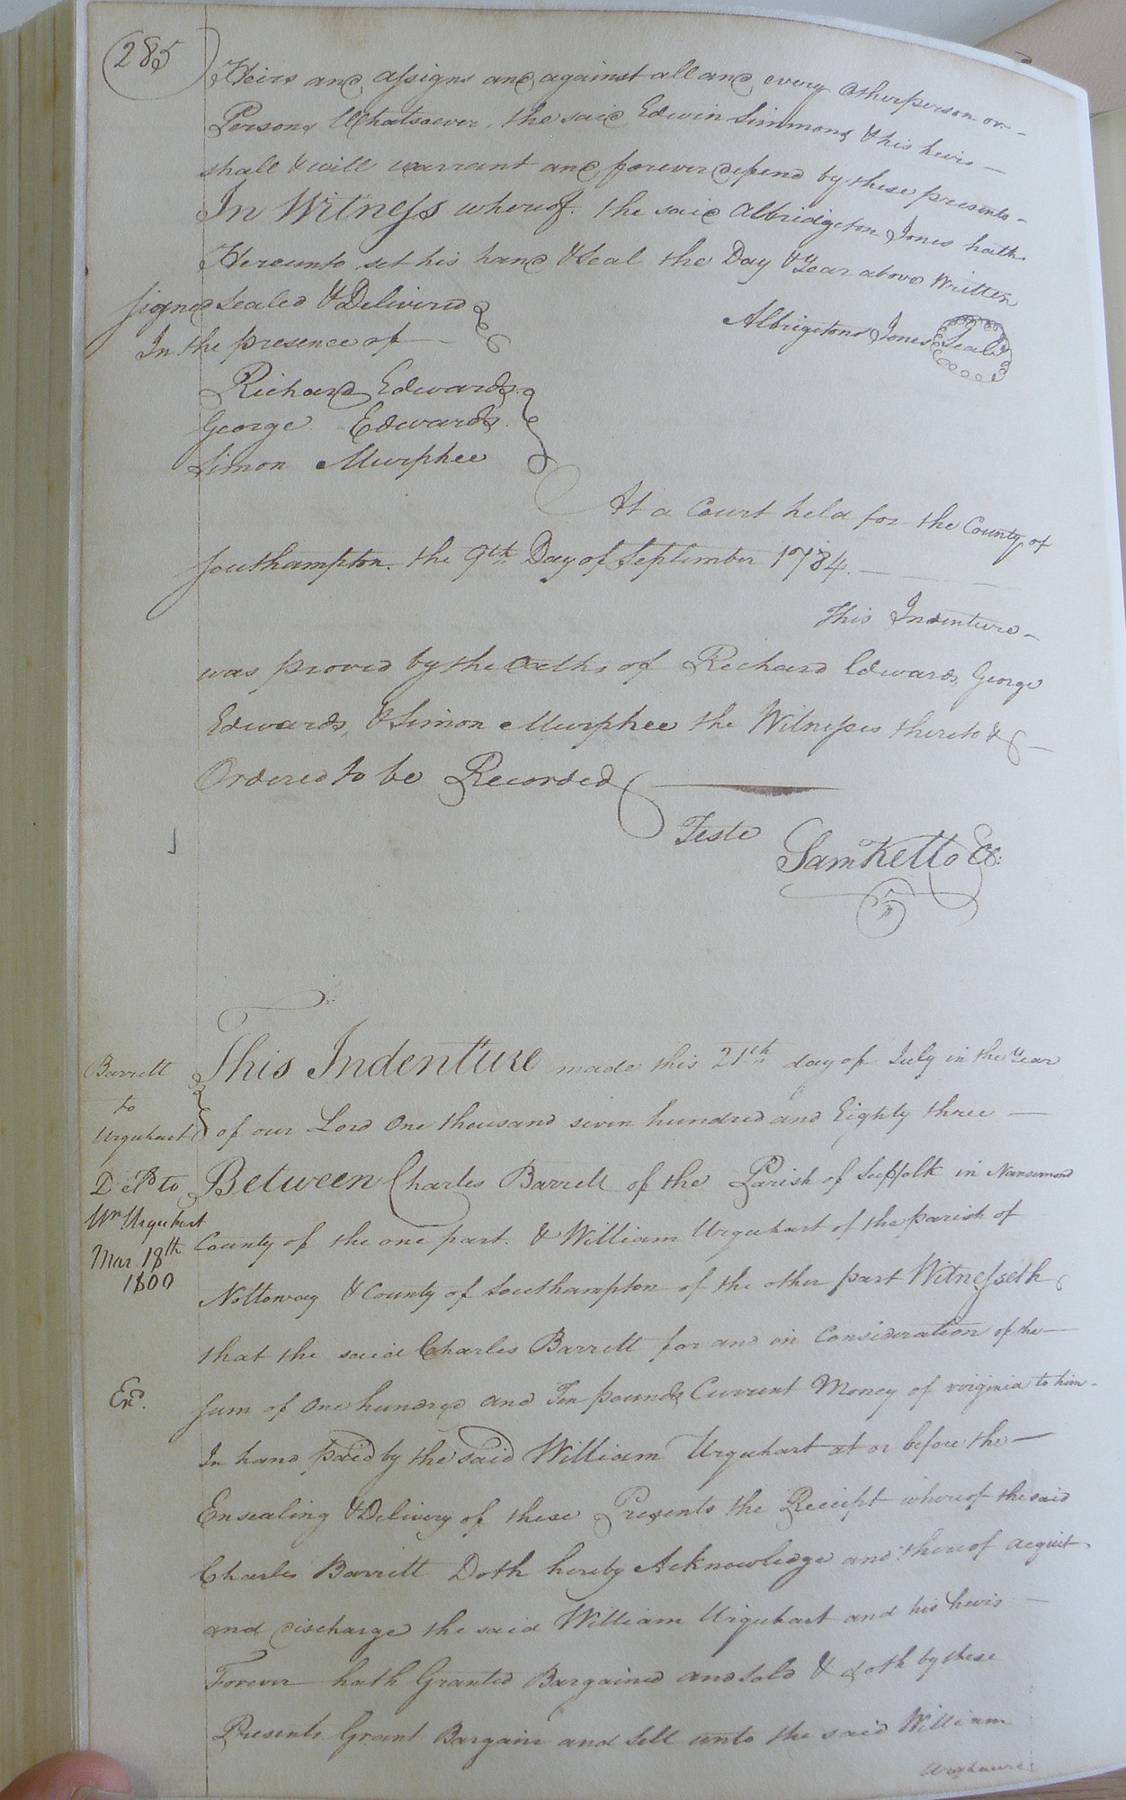 285
Heirs and assigns and against all and every other person or
Persons Whatsoever, the said Edwin Simmons & his heirs
shall & will warrant and forever defend by these presents
In Witness whereof the said Albridgeton Jones hath
Hereunto set his hand & Seal the Day & Year above Written
Signed Sealed & Delivered
In the presence of
Albrigeton Jones Seal
Richard Edwards
George Edwards
Simon Murphee
At a Court held for the County of
Southampton the 9th Day of September 1784.
This Indenture
was proved by the Oaths of Richard Edwards, George
Edwards, & Simon Murphee the Witnesses thereto &
Ordered to be Recorded
Teste
Sam Kello
Barrett
to
Urquhart
This Indenture made this 21th day of July in the Year
of our Lord One thousand seven hundred and Eighty three
Between Charles Barrett of the Parish of Suffolk in Nansemond
County of the one part. & William Urquhart of the parish of
Nottoway & County of Southampton of the other part Witnesseth
Dd to
Wm Urquhart
Mar. 18th
1800
that the said Charles Barrett for and in Consideration of the
Sum of One hundred and Ten pounds Current Money of virginia to him
Ex.
In hand paid by the said William Urquhart at or before the
Ensealing & Delivery of these Presents the Receipt whereof the said
Charles Barrett Doth hereby Acknowledge and thereof acquit
and discharge the said William Urquhart and his heirs
Forever hath Granted Bargained and Sold & doth by these
Presents Grant Bargain and Sell unto the said William